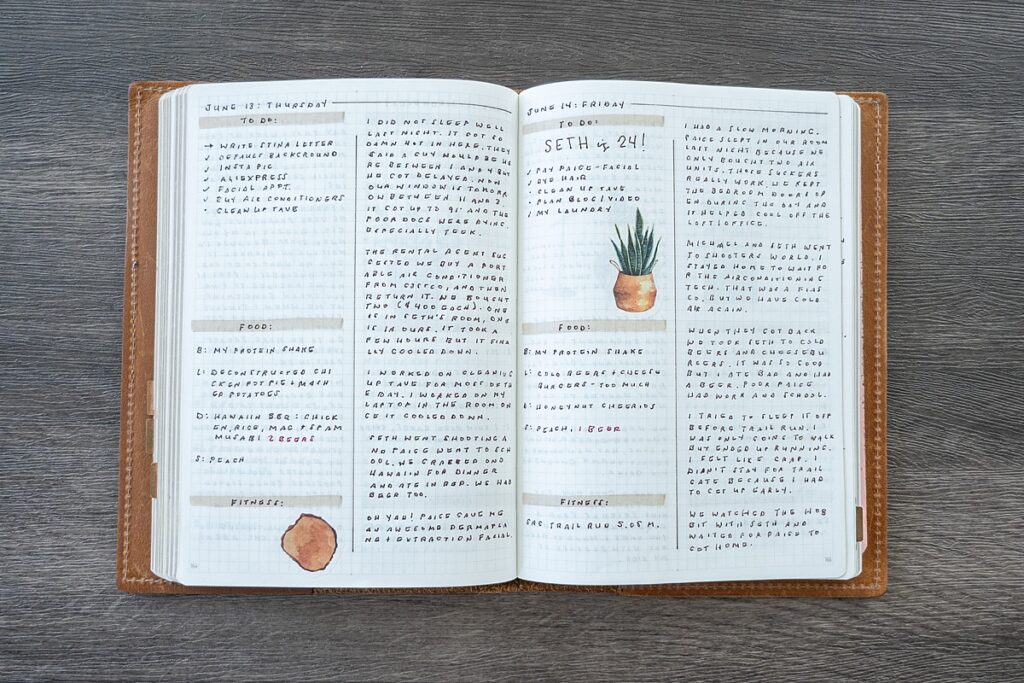 JUNE 13: THURSDAY
TO DO:
→ WRITE STINA LETTER
✓ DEFAULT BACKGROUND
✓ INSTA PIC
✓ ALIEXPRESS
✓ FACIAL APPT.
✓ BUY AIR CONDITIONERS
• CLEAN UP TAVE
FOOD:
B: MY PROTEIN SHAKE
L: DECONSTRUCTED CHI
CKEN POT PIE + MASH
ED POTATOES
D: HAWAIIN BBQ: CHICK
EN, RICE, MAC + SPAM
MUSABI 2 BEERS
S: PEACH
FITNESS:
I DID NOT SLEEP WELL
LAST NIGHT. IT GOT SO
DAMN HOT IN HERE. THEY
SAID A GUY WOULD BE HE
RE BETWEEN 1 AND 4 BUT
HE GOT DELAYED. NOW
OUR WINDOW IS TOMORR
OW BETWEEN 11 AND 2.
IT GOT UP TO 91° AND THE
POOR DOGS WERE DYING.
ESPECIALLY TEEK.
THE RENTAL AGENT SUG
GESTED WE BUY A PORT
ABLE AIR CONDITIONER
FROM COSTCO, AND THEN
RETURN IT. WE BOUGHT
TWO ($400 EACH). ONE
IS IN SETH'S ROOM, ONE
IS IN OURS. IT TOOK A
FEW HOURS BUT IT FINA
LLY COOLED DOWN.
I WORKED ON CLEANING
UP TAVE FOR MOST OF TH
E DAY. I WORKED ON MY
LAPTOP IN THE ROOM ON
CE IT COOLED DOWN.
SETH WENT SHOOTING A
ND PAIGE WENT TO SCH
OOL. WE GRABBED OND
HAWAIIN FOR DINNER
AND ATE IN BED. WE HAD
BEER TOO.
OH YAH! PAIGE GAVE ME
AN AWESOME DERMAPLA
NE + EXTRACTION FACIAL.
JUNE 14: FRIDAY
TO DO:
SETH is 24!
✓ PAY PAIGE - FACIAL
✓ DYE HAIR
• CLEAN UP TAVE
• PLAN BLOG/VIDEO
✓ MY LAUNDRY
FOOD:
B: MY PROTEIN SHAKE
L: COLD BEERS + CHEESE
BURGERS - TOO MUCH
D: HONEYNUT CHEERIOS
S: PEACH, 1 BEER
FITNESS:
TRAIL RUN 5.05 M.
I HAD A SLOW MORNING.
PAIGE SLEPT IN OUR ROOM
LAST NIGHT BECAUSE WE
ONLY BOUGHT TWO AIR
UNITS. THOSE SUCKERS
REALLY WORK. WE KEPT
THE BEDROOM DOORS OP
EN DURING THE DAY AND
IT HELPED COOL OFF THE
LOFT/OFFICE.
MICHAEL AND SETH WENT
TO SHOOTERS WORLD. I
STAYED HOME TO WAIT FO
R THE AIRCONDITIONING
TECH. THAT WAS A FIAS
CO, BUT WE HAVE COLD
AIR AGAIN.
WHEN THEY GOT BACK
WE TOOK SETH TO COLD
BEERS AND CHEESEBU
RGERS. IT WAS SO GOOD
BUT I ATE BAD AND HAD
A BEER. POOR PAIGE
HAD WORK AND SCHOOL.
I TRIED TO SLEEP IT OFF
BEFORE TRAIL RUN. I
WAS ONLY GOING TO WALK
BUT ENDED UP RUNNING.
I FELT LIKE CRAP. I
DIDN'T STAY FOR TRAIL
GATE BECAUSE I HAD
TO GET UP EARLY.
WE WATCHED THE HOB
BIT WITH SETH AND
WAITED FOR PAIGE TO
GET HOME.